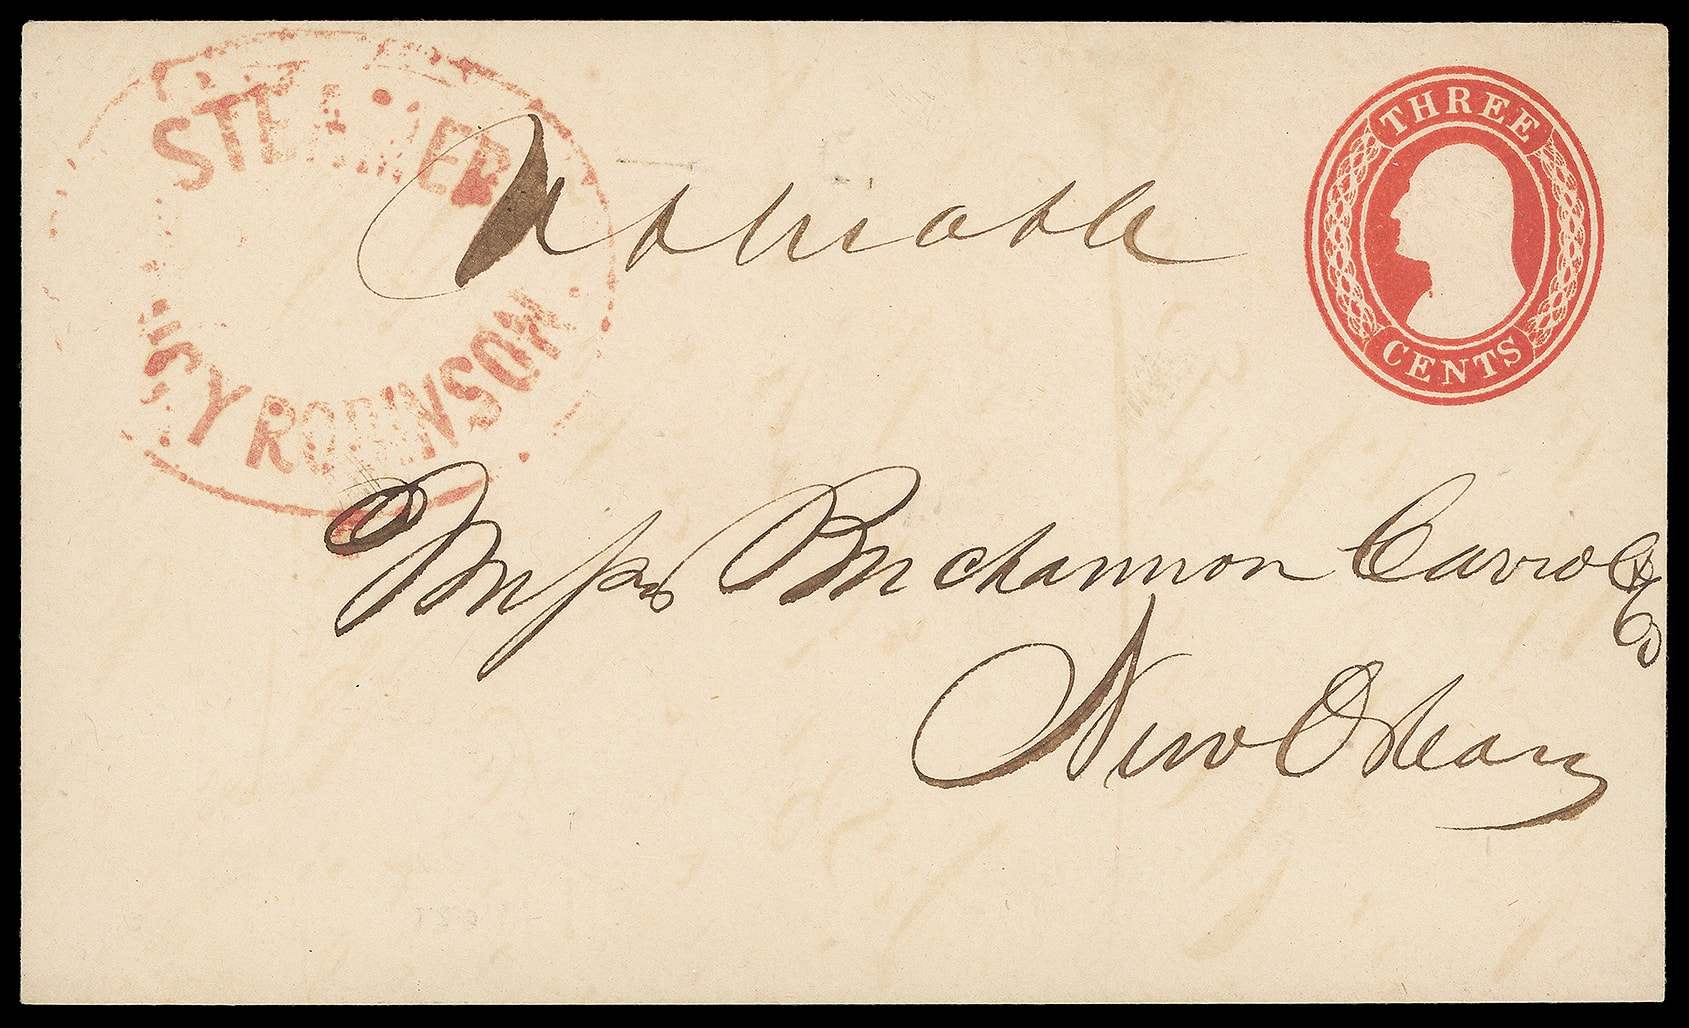 STEAMER
CY ROBINSON.
THREE
CENTS
Messrs Buchannon Carrol & Co
New Orleans